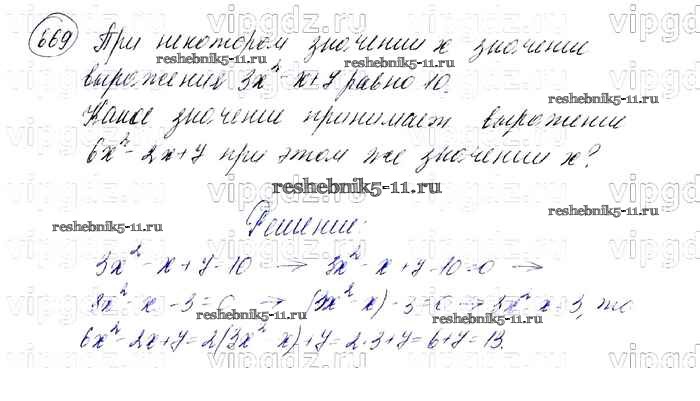 669 При некотором значении x значение
выражения 3x² - x + 7 равно 10.
Какое значение принимает выражение
6x² - 2x + 7 при этом же значении x?
Решение:
3x² - x + 7 = 10 → 3x² - x + 7 - 10 = 0 →
3x² - x - 3 = 0 → (3x² - x) - 3 = 0 → 3x² - x = 3, то
6x² - 2x + 7 = 2(3x² - x) + 7 = 2·3 + 7 = 6 + 7 = 13.
reshebnik5-11.ru
vipgdz.ru